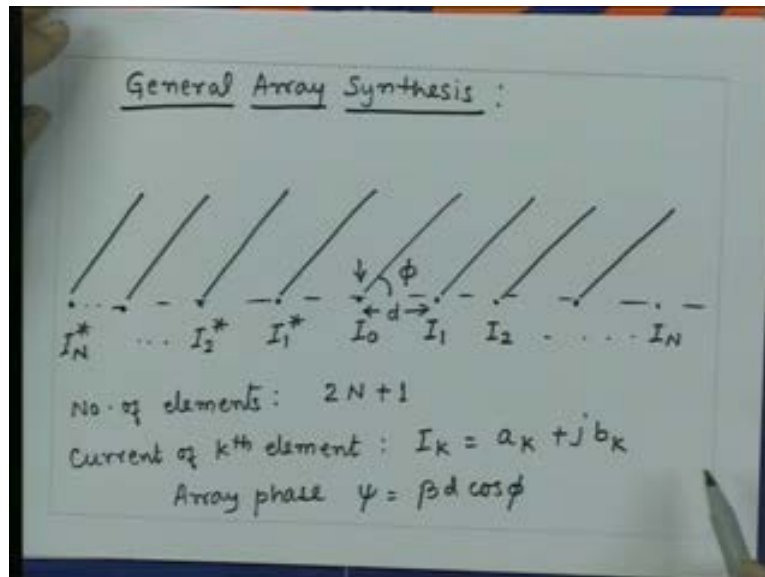 General Array Synthesis :
ϕ
d
I_N* ... I_2* I_1* I_0 I_1 I_2 . . . . I_N
No. of elements : 2N+1
Current of kth element : I_K = a_K + j b_K
Array phase ψ = βd cosϕ